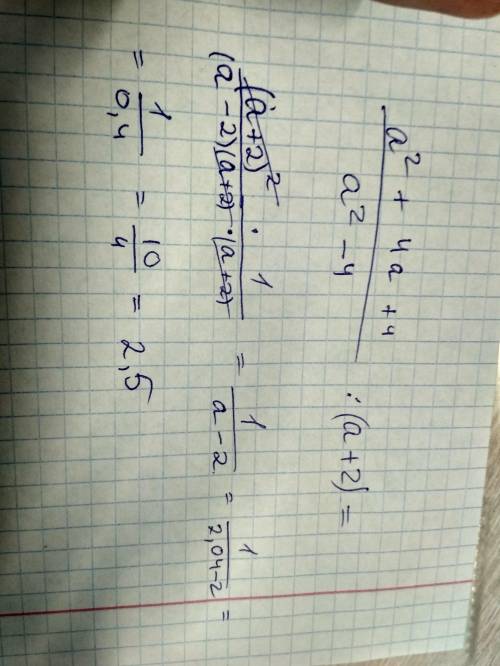 (a² + 4a + 4)/(a² - 4) : (a+2) =
((a+2)² · 1)/((a-2)(a+2) · (a+2)) = 1/(a-2) = 1/(2,04-2) =
= 1/0,4 = 10/4 = 2,5